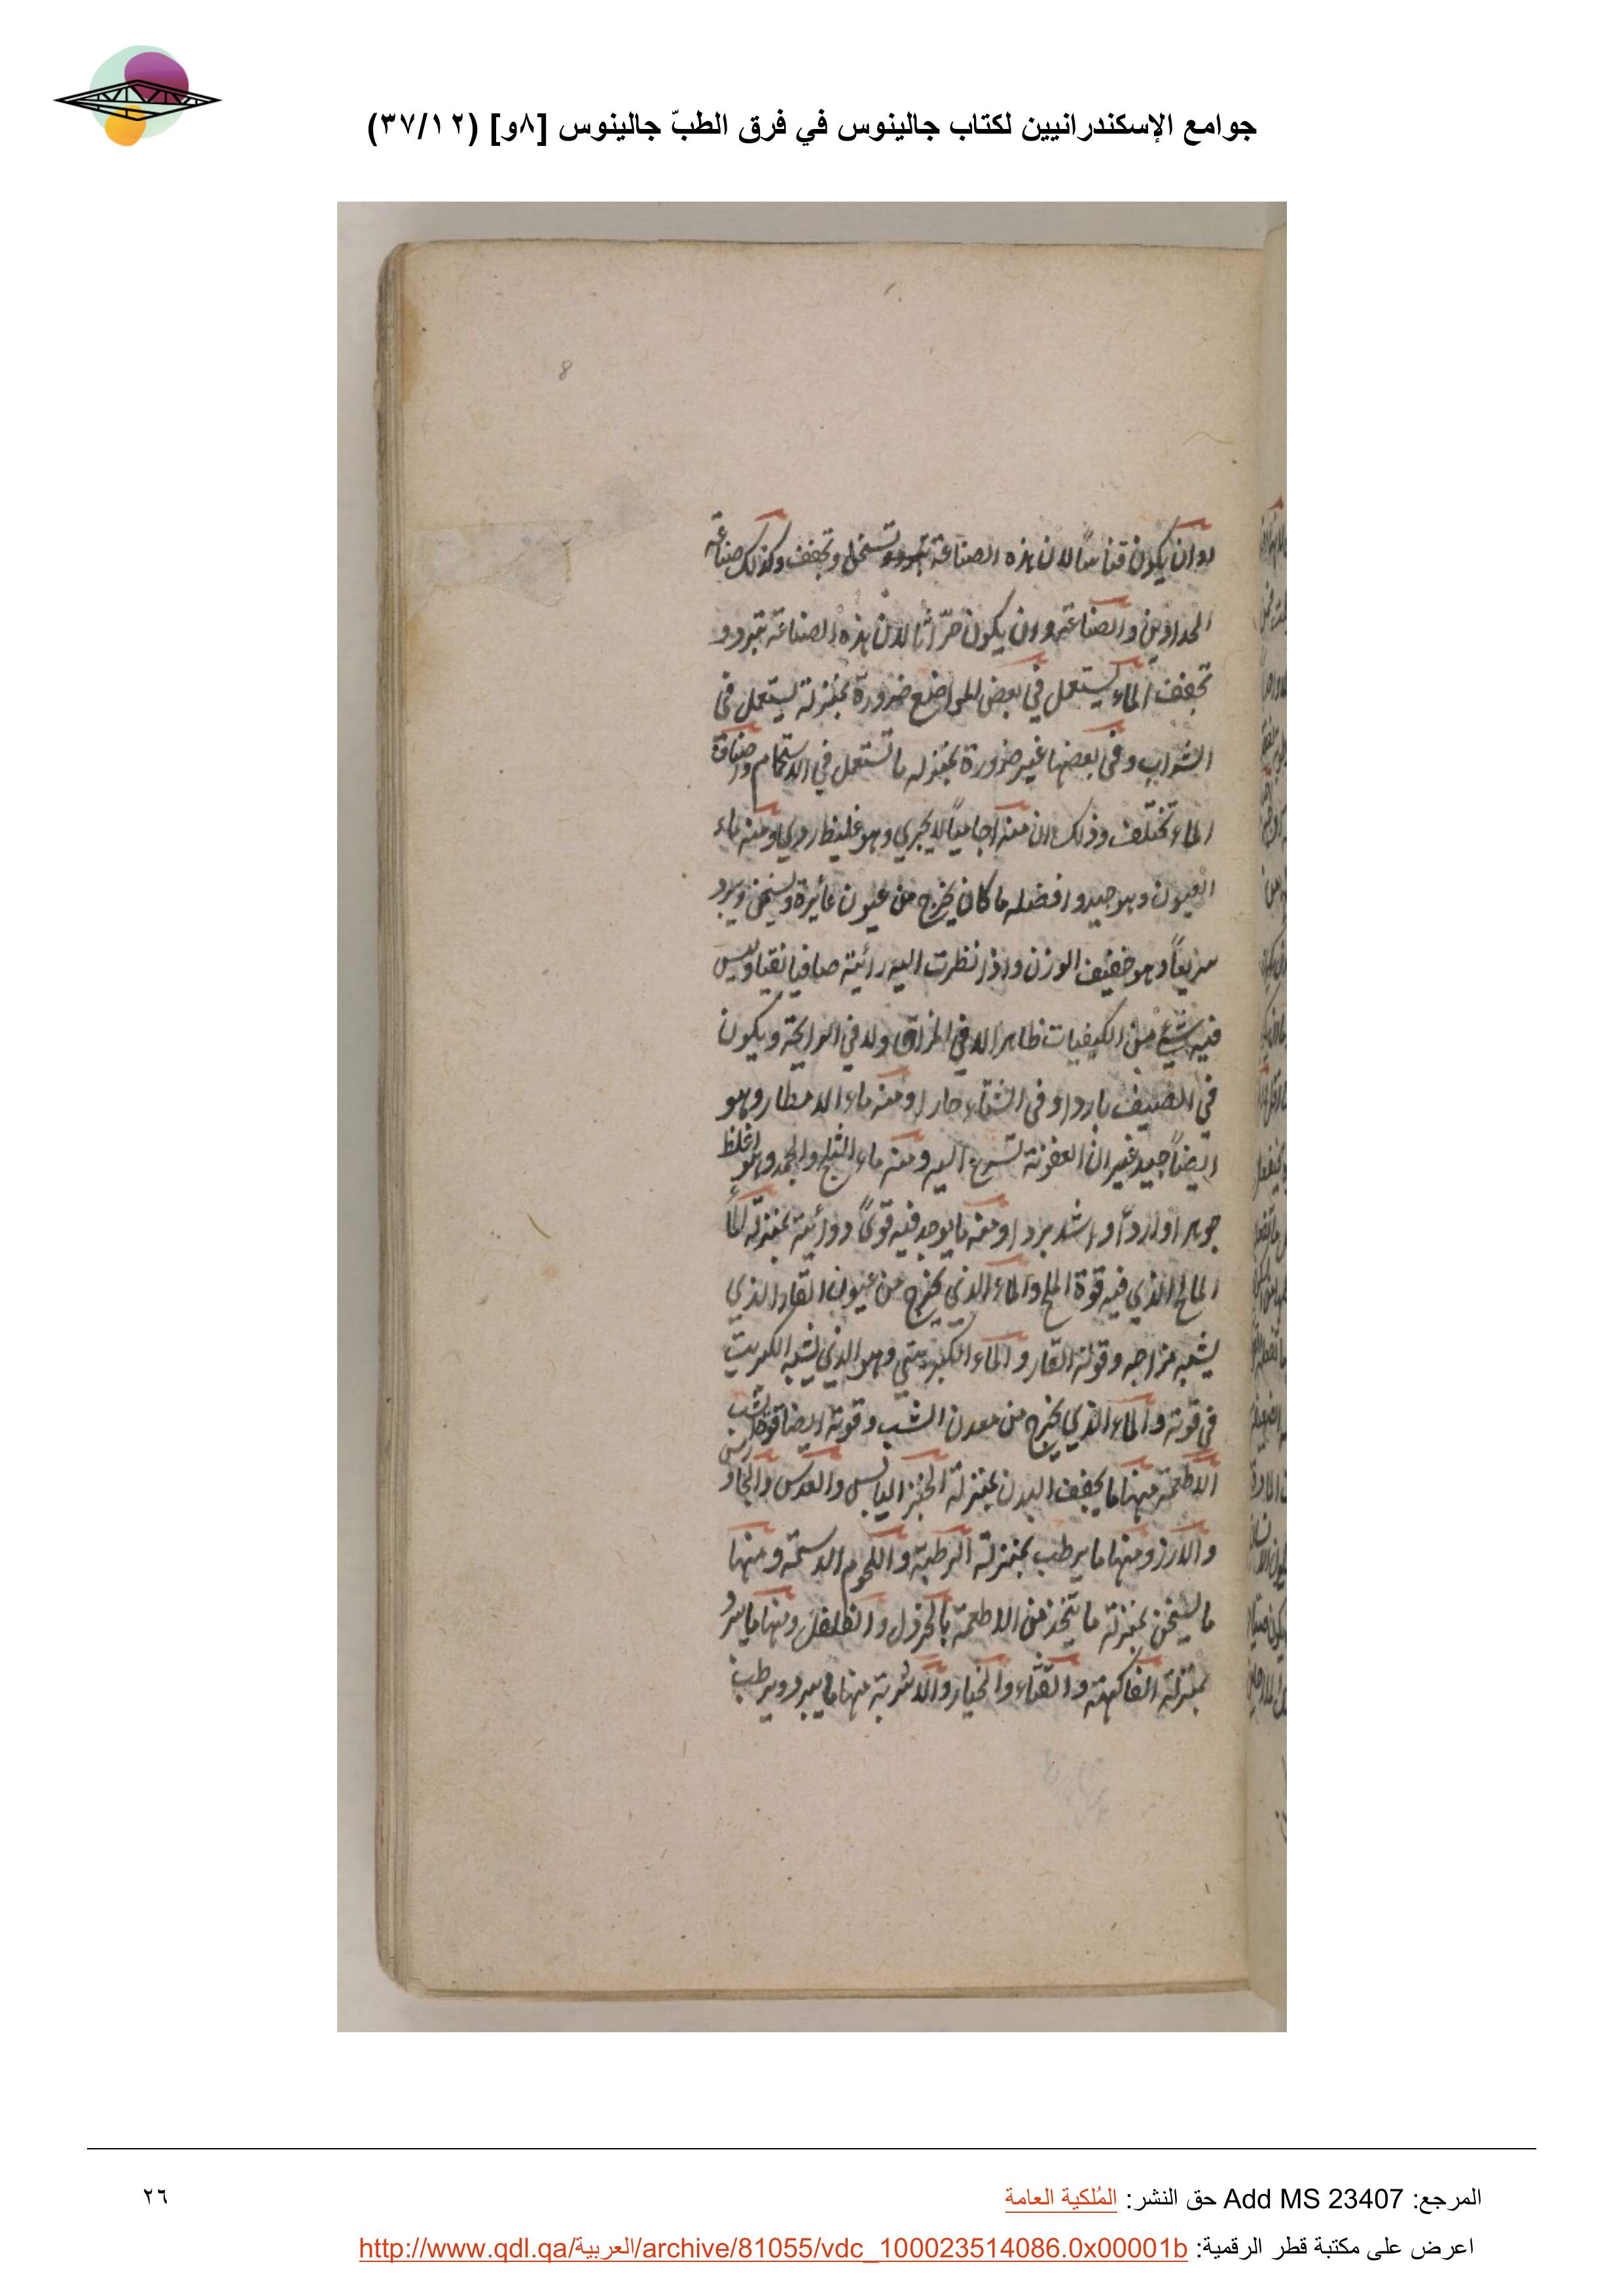 جوامع الإسكندرانيين لكتاب جالينوس في فرق الطبّ جالينوس [٨و] (٣٧/١٢)
8
وان يكون قناصا لان هذه الصناعة تسخن وتجفف وكذلك صناعة
الحدادين والصناعة وان يكون حرّاثا لان هذه الصناعة تبرد و
تجفف الماء يستعمل في بعض المواضع ضرورة بمنزلة يستعمل في
الشراب وفي بعضها غير ضرورة بمنزله ما تستعمل في الاستحمام واصناف
الماء تختلف وذلك ان منه اجاميا لا يجري وهو غليظ ردي ومنه ماء
العيون وهو جيد وافضله ما كان يخرج من عيون غائرة ويسخن ويبرد
سريعاً وهو خفيف الوزن واذا نظرت اليه رائيته صافيا نقيا وليس
فيه شيء من الكيفيات ظاهرا لا في المذاق ولا في الرايحة ويكون
في الصيف باردا وفي الشتاء حارا ومنه ماء الامطار وهو
ايضاً جيد غير ان العفونة تسرع اليه ومنه ماء الثلج والجمد وهو اغلظ
جوهرا واردأ واشد بردا ومنه ما يوجد فيه قوىً دوائية بمنزلة الما
المالح الذي فيه قوة الملح والماء الذي يخرج من عيون القار الذي
يشبه مزاجه وقوته القار والماء الكبريتي وهو الذي يشبه الكبريت
في قوته والماء الذي يخرج من معدن الشب وقوته ايضا قوة الشب
الاطعمة منها ما يجفف البدن بمنزلة الخبز اليابس والعدس والجاورس
والارز ومنها ما يرطب بمنزلة الرطبة واللحوم الدسمة ومنها
ما يسخن بمنزلة ما يتخذ من الاطعمة بالخردل والفلفل ومنها ما يبرد
بمنزلة الفاكهة والقثاء والخيار والاشربة منها ما يبرد ويرطب
المرجع: Add MS 23407 حق النشر: المُلكية العامة
٢٦
اعرض على مكتبة قطر الرقمية: http://www.qdl.qa/العربية/archive/81055/vdc_100023514086.0x00001b